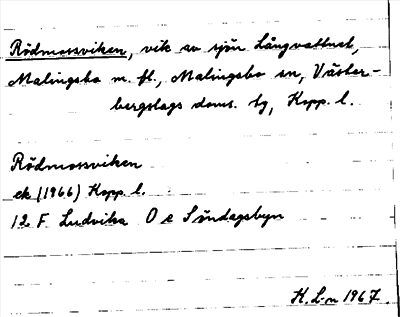 Rödmossviken, vik av sjön Långvattnet,
Malingsbo m. fl., Malingsbo sn, Väster-
bergslags doms. tg, Kopp. l.
Rödmossviken
ek (1966) Kopp. l.
12 F Ludvika O e Söndagsbyn
H. L-n 1967.